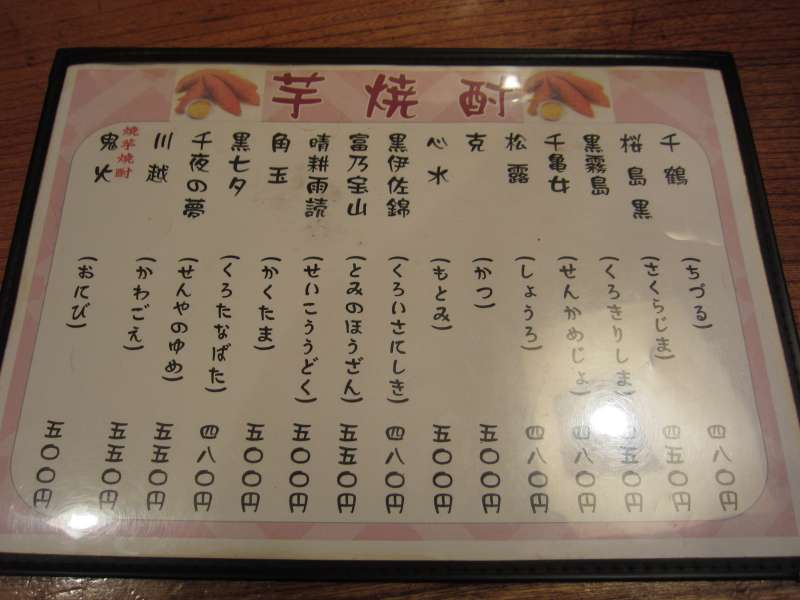 芋焼酎
千鶴 (ちづる) 四八〇円
桜島 黒 (さくらじま) 四五〇円
黒霧島 (くろきりしま) 四五〇円
千亀女 (せんかめじょ) 四八〇円
松露 (しょうろ) 四八〇円
克 (かつ) 五〇〇円
心水 (もとみ) 五〇〇円
黒伊佐錦 (くろいさにしき) 四八〇円
富乃宝山 (とみのほうざん) 五五〇円
晴耕雨読 (せいこううどく) 五〇〇円
角玉 (かくたま) 五〇〇円
黒七夕 (くろたなばた) 四八〇円
千夜の夢 (せんやのゆめ) 五五〇円
川越 (かわごえ) 五五〇円
焼芋焼酎
鬼火 (おにび) 五〇〇円